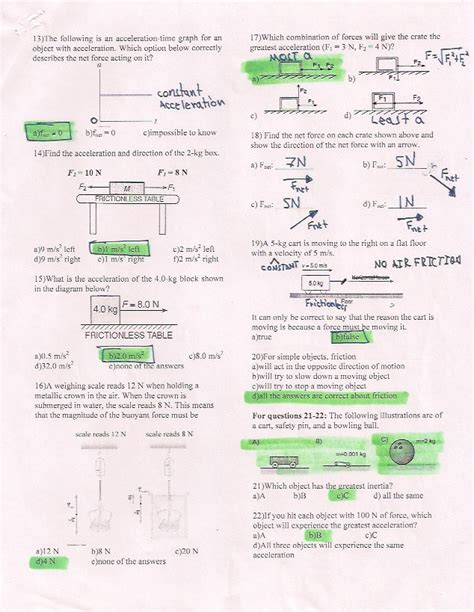 13)The following is an acceleration-time graph for an
object with acceleration. Which option below correctly
describes the net force acting on it?
a
constant
acceleration
0
t
a)fnet ≠ 0 b)fnet = 0 c)impossible to know
14)Find the acceleration and direction of the 2-kg box.
F2 = 10 N F1 = 8 N
F2 M F1
FRICTIONLESS TABLE
a)9 m/s² left b)1 m/s² left c)2 m/s² left
d)9 m/s² right e)1 m/s² right f)2 m/s² right
15)What is the acceleration of the 4.0-kg block shown
in the diagram below?
4.0 kg F = 8.0 N
FRICTIONLESS TABLE
a)0.5 m/s² b)2.0 m/s² c)8.0 m/s²
d)32.0 m/s² e)none of the answers
16)A weighing scale reads 12 N when holding a
metallic crown in the air. When the crown is
submerged in water, the scale reads 8 N. This means
that the magnitude of the buoyant force must be
scale reads 12 N scale reads 8 N
a)12 N b)8 N c)20 N
d)4 N e)none of the answers
17)Which combination of forces will give the crate the
greatest acceleration (F1 = 3 N, F2 = 4 N)?
most a
F=√F1²+F2²
a) F1 F2 b) F1 F2
c) d) F1 F2
Least a
18) Find the net force on each crate shown above and
show the direction of the net force with an arrow.
a) Fnet: 7N b) Fnet: 5N
Fnet Fnet
c) Fnet: 5N d) Fnet: 1N
Fnet Fnet
19)A 5-kg cart is moving to the right on a flat floor
with a velocity of 5 m/s.
CONSTANT v = 5.0 m/s NO AIR FRICTION
5.0 kg
Frictionless Floor
It can only be correct to say that the reason the cart is
moving is because a force must be moving it.
a)true b)false
20)For simple objects, friction
a)will act in the opposite direction of motion
b)will try to slow down a moving object
c)will try to stop a moving object
d)all the answers are correct about friction
For questions 21-22: The following illustrations are of
a cart, safety pin, and a bowling ball.
A) B) C) m=2 kg
m=0.001 kg
21)Which object has the greatest inertia?
a)A b)B c)C d) all the same
22)If you hit each object with 100 N of force, which
object will experience the greatest acceleration?
a)A b)B c)C
d)All three objects will experience the same
acceleration